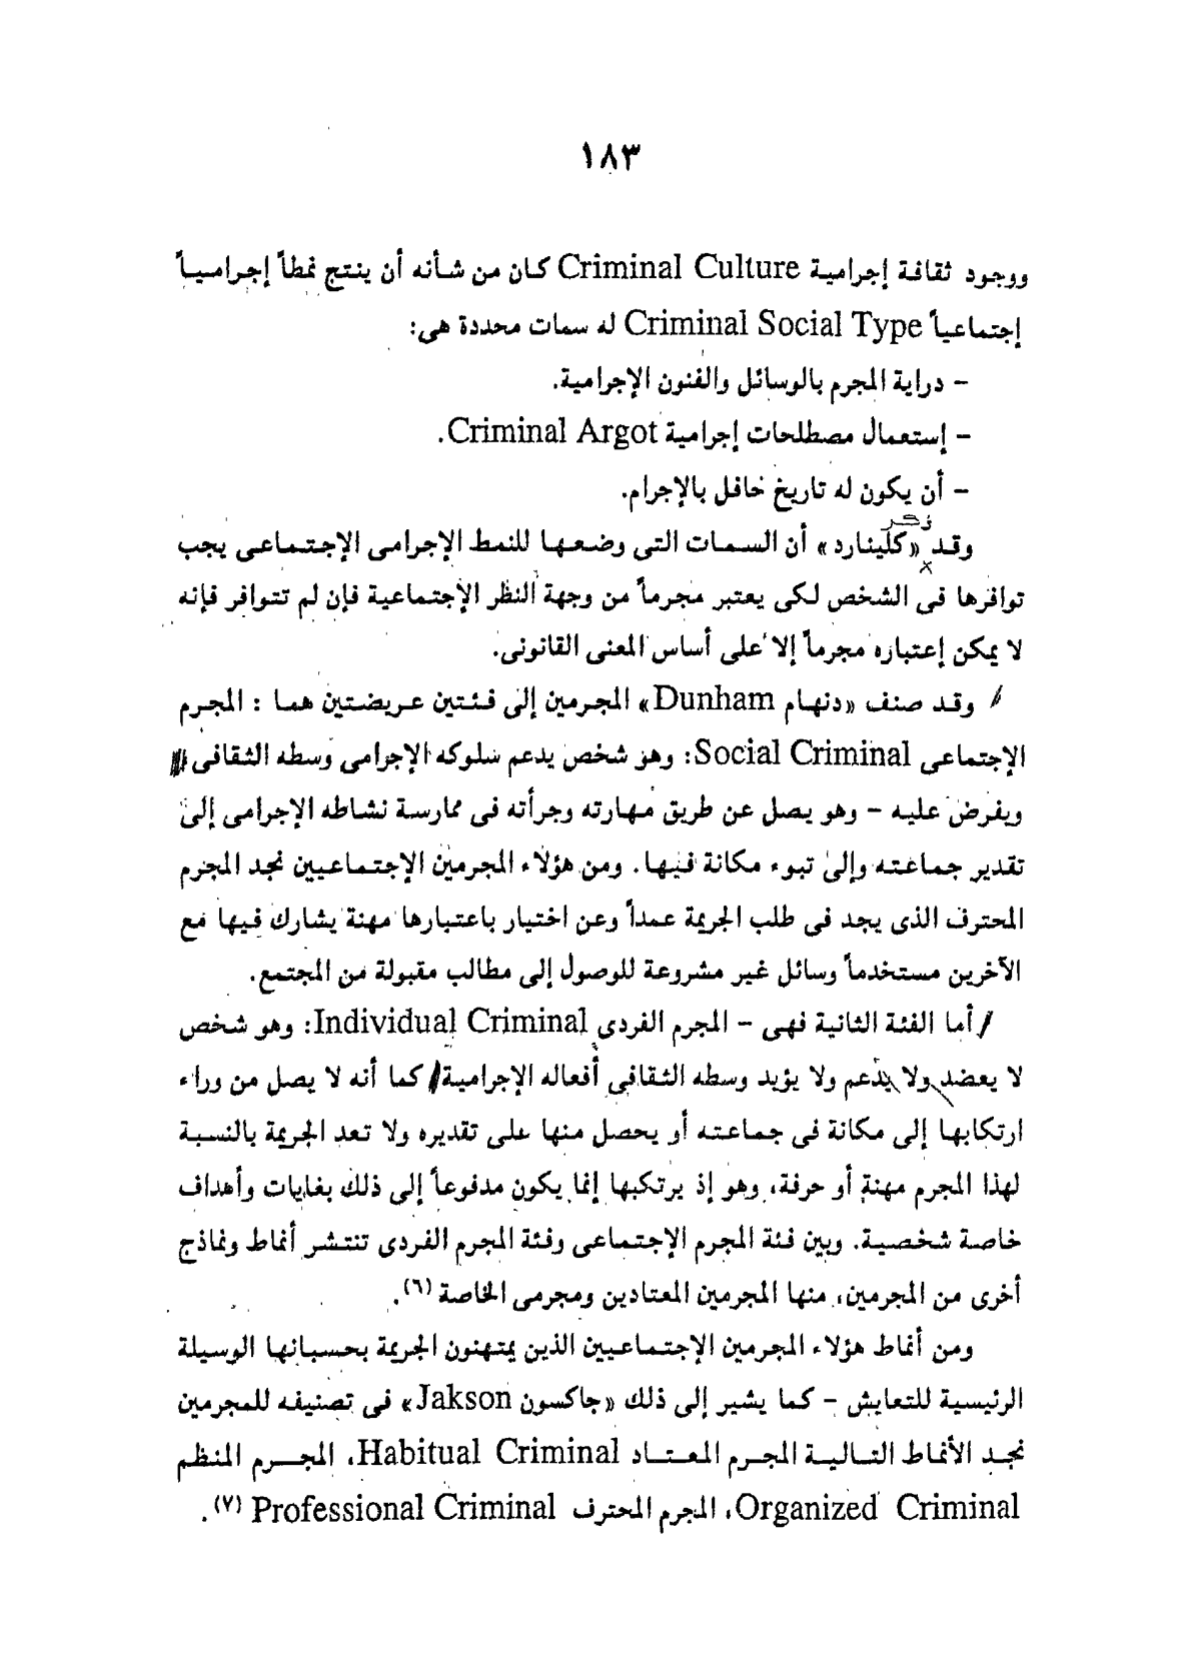 ١٨٣
ووجود ثقافة إجرامية Criminal Culture كان من شأنه أن ينتج نمطاً إجرامياً
إجتماعياً Criminal Social Type له سمات محددة هى:
- دراية المجرم بالوسائل والفنون الإجرامية.
- إستعمال مصطلحات إجرامية Criminal Argot.
- أن يكون له تاريخ حافل بالإجرام.
ذكر
وقد «كلينارد» أن السمات التى وضعها للنمط الإجرامى الإجتماعى يجب
توافرها فى الشخص لكى يعتبر مجرماً من وجهة النظر الإجتماعية فإن لم تتوافر فإنه
لا يمكن إعتباره مجرماً إلا على أساس المعنى القانونى.
وقد صنف «دنهام Dunham» المجرمين إلى فئتين عريضتين هما : المجرم
الإجتماعى Social Criminal: وهو شخص يدعم سلوكه الإجرامى وسطه الثقافى
ويفرض عليه - وهو يصل عن طريق مهارته وجرأته فى ممارسة نشاطه الإجرامى إلى
تقدير جماعته وإلى تبوء مكانة فيها. ومن هؤلاء المجرمين الإجتماعيين نجد المجرم
المحترف الذى يجد فى طلب الجريمة عمداً وعن اختيار باعتبارها مهنة يشارك فيها مع
الآخرين مستخدماً وسائل غير مشروعة للوصول إلى مطالب مقبولة من المجتمع.
أما الفئة الثانية فهى - المجرم الفردى Individual Criminal: وهو شخص
لا يعضد ولا يدعم ولا يؤيد وسطه الثقافى أفعاله الإجرامية كما أنه لا يصل من وراء
ارتكابها إلى مكانة فى جماعته أو يحصل منها على تقديره ولا تعد الجريمة بالنسبة
لهذا المجرم مهنة أو حرفة، وهو إذ يرتكبها إنما يكون مدفوعاً إلى ذلك بغايات وأهداف
خاصة شخصية. وبين فئة المجرم الإجتماعى وفئة المجرم الفردى تنتشر أنماط ونماذج
أخرى من المجرمين، منها المجرمين المعتادين ومجرمى الخاصة (٦).
ومن أنماط هؤلاء المجرمين الإجتماعيين الذين يمتهنون الجريمة بحسبانها الوسيلة
الرئيسية للتعايش - كما يشير إلى ذلك «جاكسون Jakson» فى تصنيفه للمجرمين
نجد الأنماط التالية المجرم المعتاد Habitual Criminal، المجرم المنظم
Organized Criminal، المجرم المحترف Professional Criminal (٧).